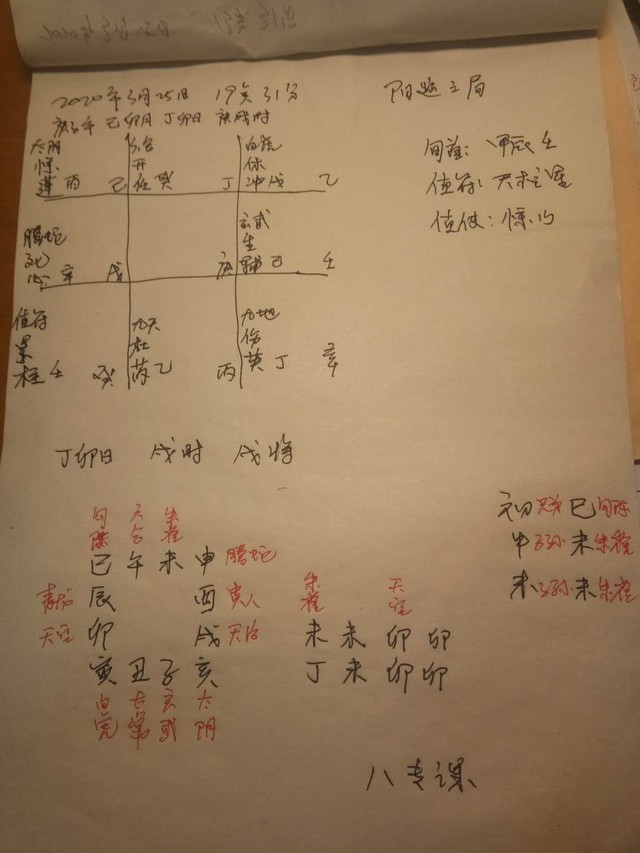 2020年3月25日 19点31分
阳遁三局
庚子年 己卯月 丁卯日 庚戌时
旬首: 甲辰壬
值符: 天柱星
值使: 惊门
太阴
惊
蓬 丙 己
六合
开
任 癸 丁
白虎
休
冲 戊 乙
腾蛇
死
心 辛 戊
庚
玄武
生
辅 己 壬
值符
景
柱 壬 癸
九天
杜
芮 乙 丙
九地
伤
英 丁 辛
丁卯日 戌时 戌将
勾陈 六合 朱雀
巳 午 未 申 腾蛇
青龙 辰 酉 贵人
天空 卯 戌 天后
寅 丑 子 亥
白虎 太常 玄武 太阴
朱雀 天空
未 未 卯 卯
丁 未 卯 卯
初 巳 勾陈
中 子孙 未 朱雀
末 子孙 未 朱雀
八专课